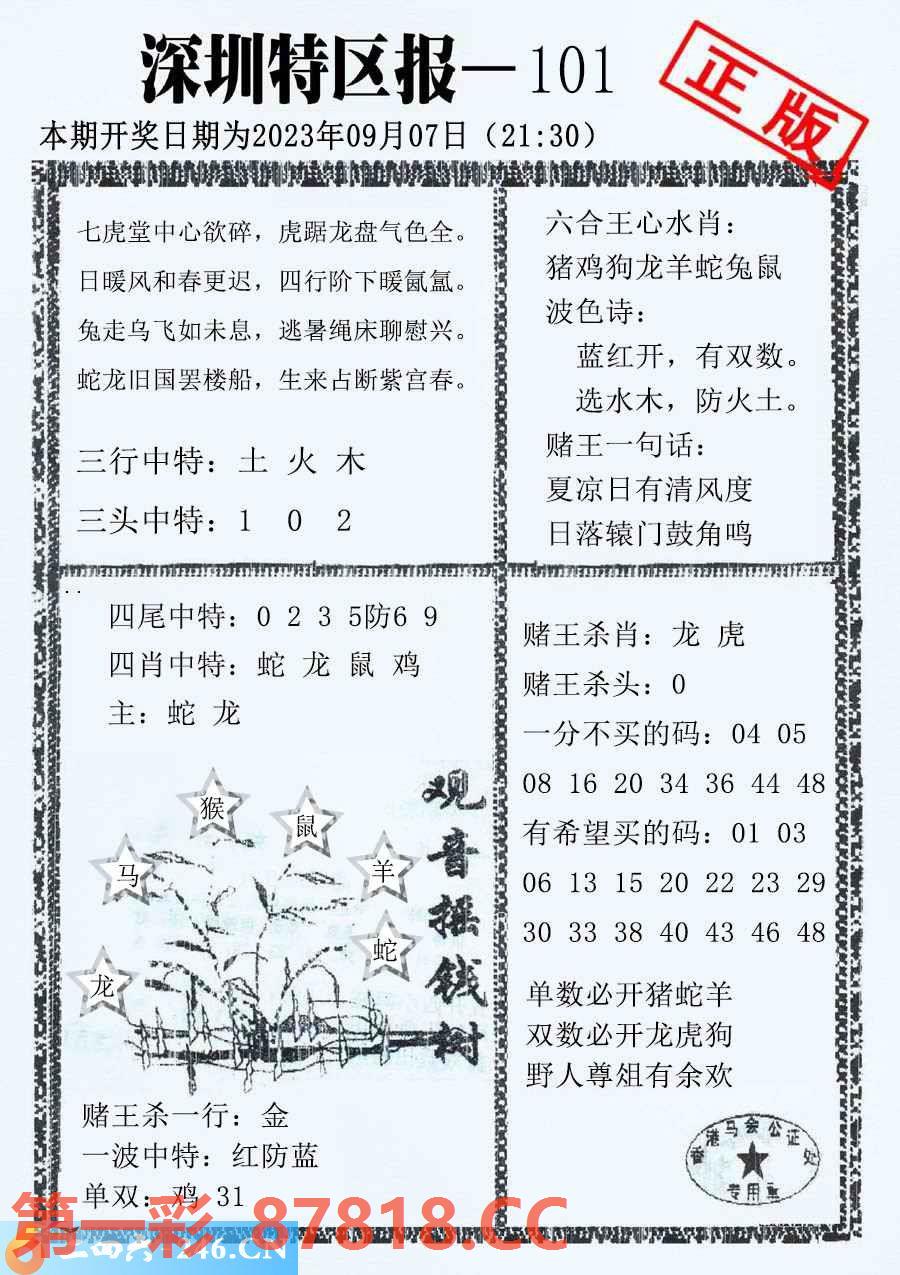 深圳特区报—101
正版
本期开奖日期为2023年09月07日（21:30）
七虎堂中心欲碎，虎踞龙盘气色全。
日暖风和春更迟，四行阶下暖氤氲。
兔走乌飞如未息，逃暑绳床聊慰兴。
蛇龙旧国罢楼船，生来占断紫宫春。
三行中特：土 火 木
三头中特：1 0 2
六合王心水肖：
猪鸡狗龙羊蛇兔鼠
波色诗：
蓝红开，有双数。
选水木，防火土。
赌王一句话：
夏凉日有清风度
日落辕门鼓角鸣
四尾中特：0 2 3 5防6 9
四肖中特：蛇 龙 鼠 鸡
主：蛇 龙
观音摇钱树
猴
鼠
马
羊
蛇
龙
赌王杀一行：金
一波中特：红防蓝
单双：鸡 31
赌王杀肖：龙 虎
赌王杀头：0
一分不买的码：04 05
08 16 20 34 36 44 48
有希望买的码：01 03
06 13 15 20 22 23 29
30 33 38 40 43 46 48
单数必开猪蛇羊
双数必开龙虎狗
野人尊俎有余欢
香港马会公证处
专用章
第一彩 87818.CC
246.CN